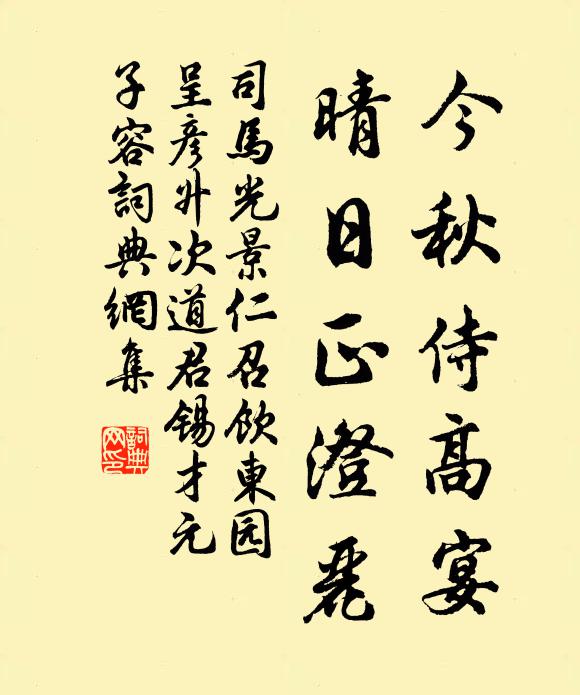 今秋侍高宴
晴日正澄麗
司馬光景仁召飲東园
呈彥升次道君錫才元
子容詞典網集
詞典
网印